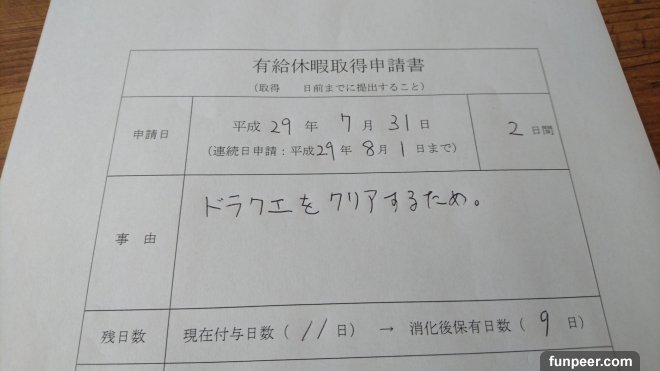 有給休暇取得申請書
(取得　　日前までに提出すること)
申請日
平成 29 年 7 月 31 日
(連続日申請：平成29 年 8 月 1 日まで)
2 日間
事　由
ドラクエをクリアするため。
残日数
現在付与日数 ( 11 日) → 消化後保有日数 ( 9 日)
funpeer.com